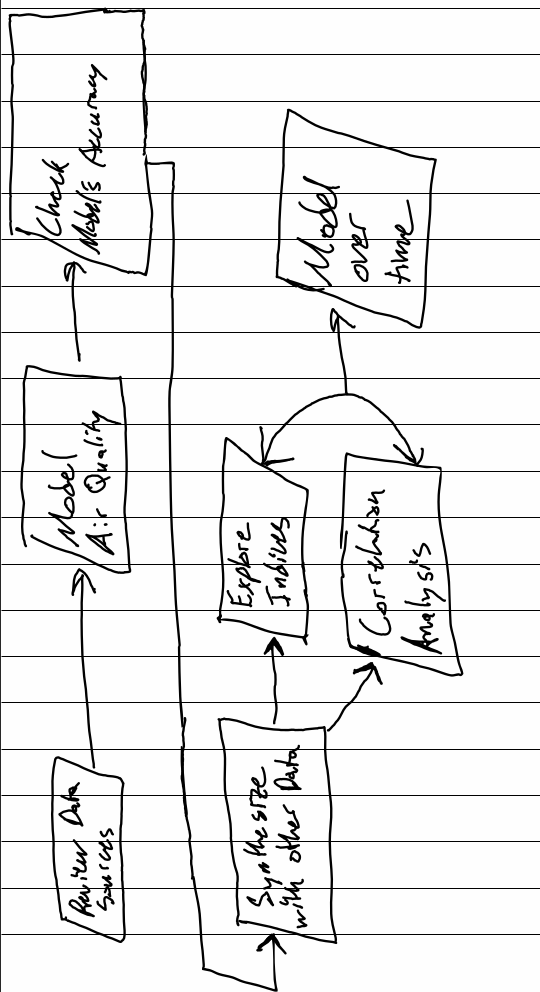 Review Data
Sources
Model
Air Quality
Check
Model's Accuracy
Synthesize
with other Data
Explore
Indices
Correlation
Analysis
Model
over
time